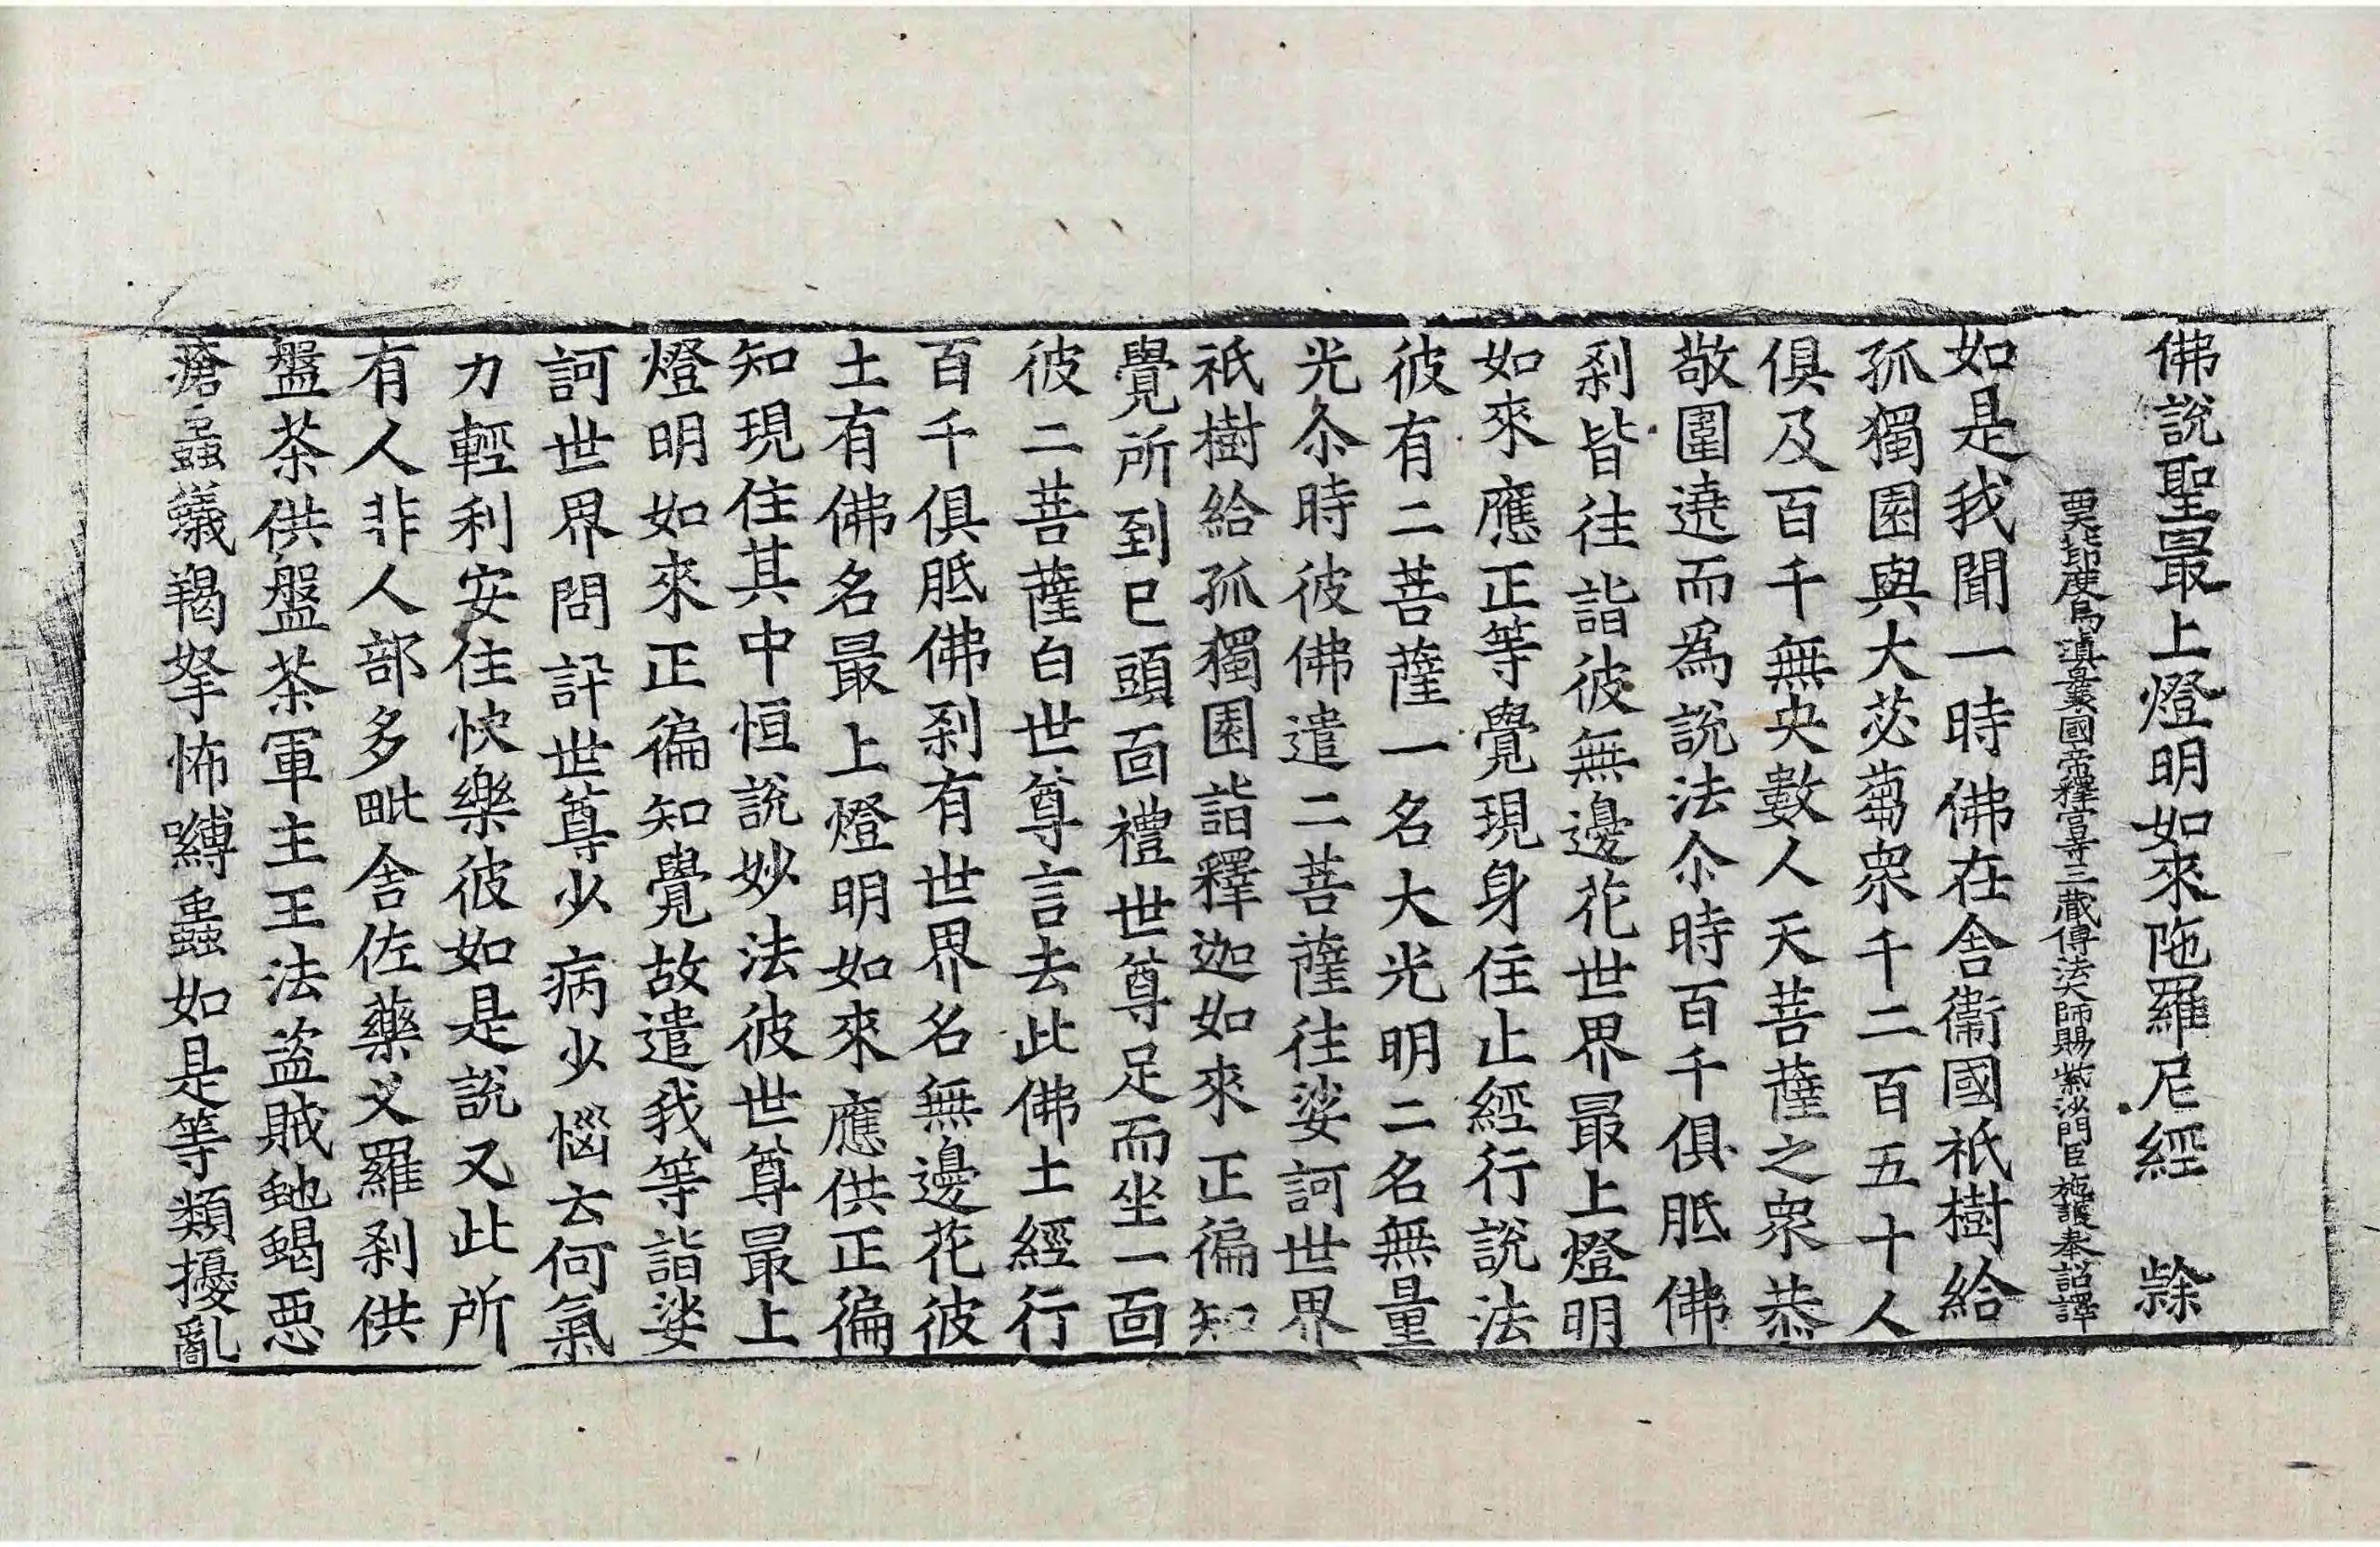 佛說聖最上燈明如來陁羅尼經 㵢
西天北印度烏塡曩國帝釋宮寺三藏傳法大師賜紫沙門臣施護奉詔譯
如是我聞一時佛在舍衞國祇樹給
孤獨園與大苾蒭衆千二百五十人
俱及百千無央數人天菩薩之衆恭
敬圍遶而爲說法尒時百千俱胝佛
刹皆往詣彼無邊花世界最上燈明
如來應正等覺現身住止經行說法
彼有二菩薩一名大光明二名無量
光尒時彼佛遣二菩薩往娑訶世界
祇樹給孤獨園詣釋迦如來正徧知
覺所到已頭面禮世尊足而坐一面
彼二菩薩白世尊言去此佛土經行
百千俱胝佛刹有世界名無邊花彼
土有佛名最上燈明如來應供正徧
知現住其中恒說妙法彼世尊最上
燈明如來正徧知覺故遣我等詣娑
訶世界問訊世尊少病少惱云何氣
力輕利安住快樂彼如是說又此所
有人非人部多毗舍佐藥叉羅刹供
盤茶供盤茶軍主王法盜賊虵蝎惡
瘡蟲蟻羯拏怖嚩蟲如是等類擾亂